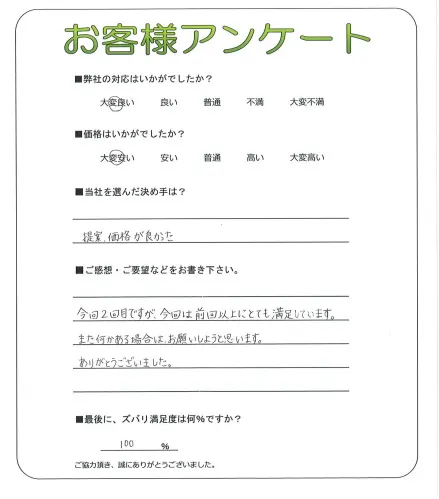 お客様アンケート
■弊社の対応はいかがでしたか？
大変良い 良い 普通 不満 大変不満
■価格はいかがでしたか？
大変安い 安い 普通 高い 大変高い
■当社を選んだ決め手は？
提案、価格が良かった
■ご感想・ご要望などをお書き下さい。
今回2回目ですが、今回は前回以上にとても満足しています。
また何かある場合は、お願いしようと思います。
ありがとうございました。
■最後に、ズバリ満足度は何%ですか？
100 %
ご協力頂き、誠にありがとうございました。